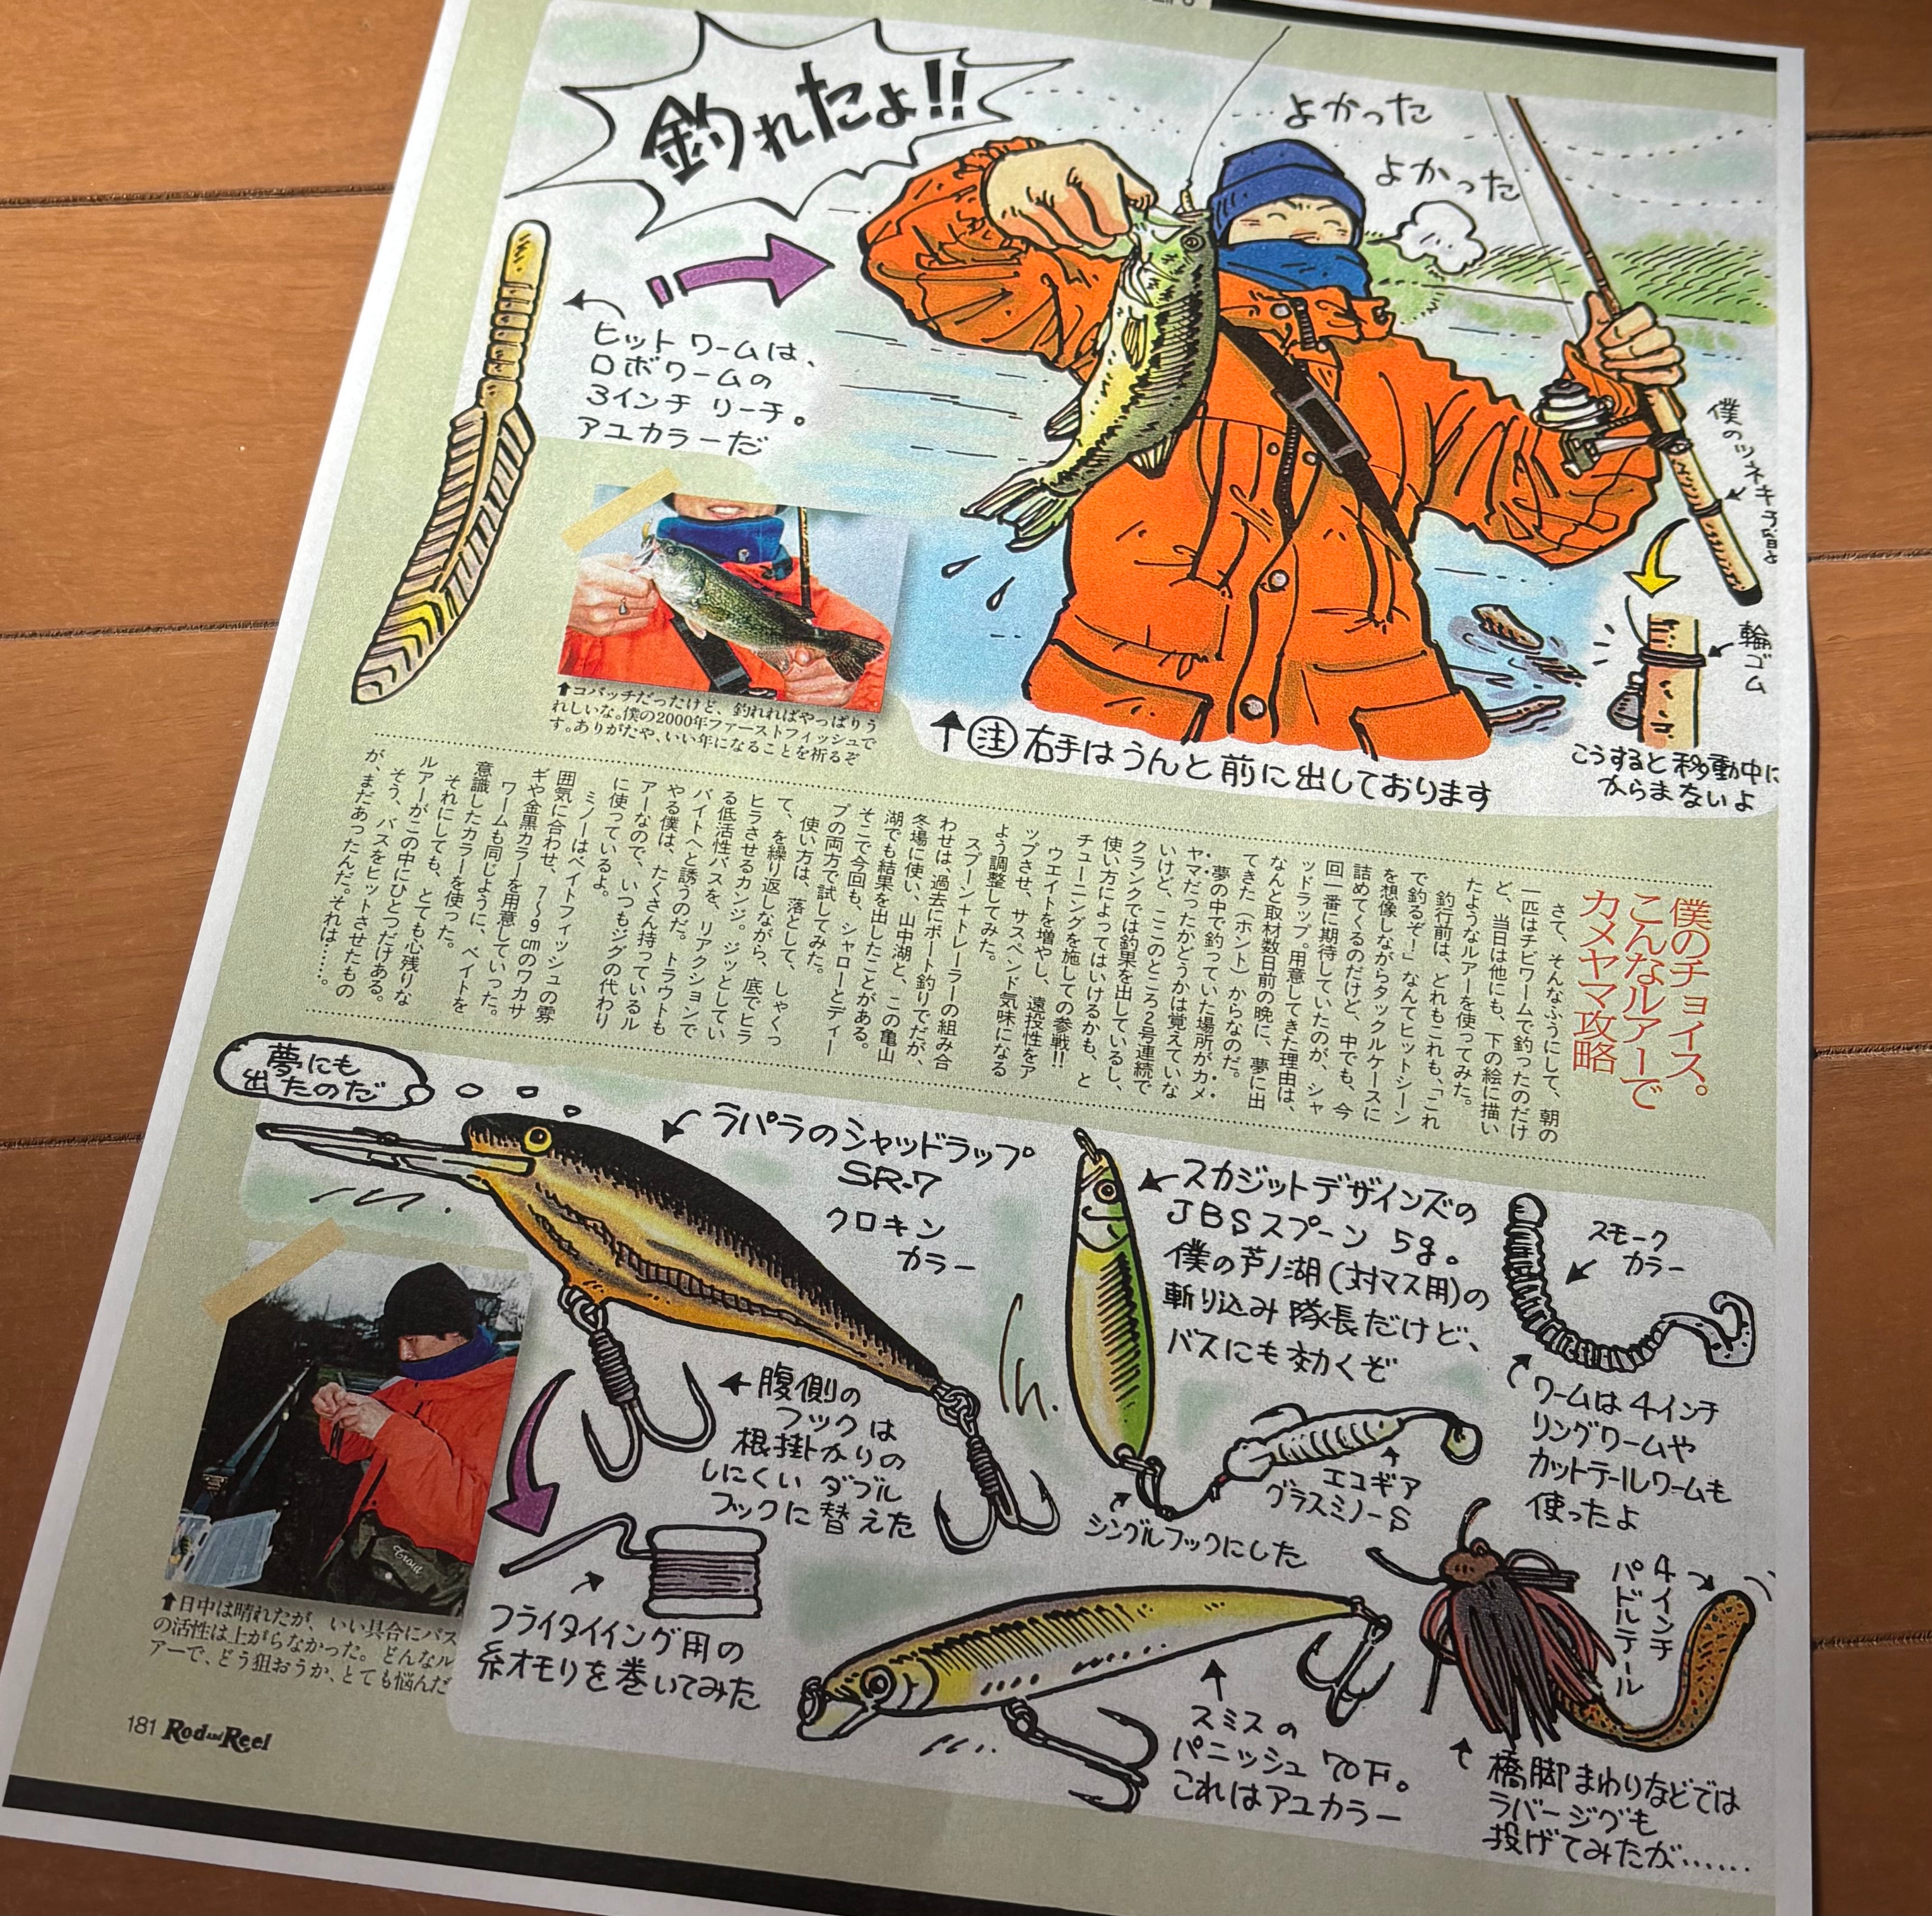 釣れたよ!!
よかった
よかった
ヒットワームは、
ロボワームの
3インチ リーチ。
アユカラーだ
僕のツネキチ
輪ゴム
こうすると移動中に
からまないよ
↑コバッチだったけど、釣れればやっぱりう
れしいな。僕の2000年ファーストフィッシュで
す。ありがたや、いい年になることを祈るぞ
↑注 右手はうんと前に出しております
僕のチョイス。
こんなルアーで
カメヤマ攻略
さて、そんなふうにして、朝の
一匹はチビワームで釣ったのだけ
ど、当日は他にも、下の絵に描い
たようなルアーを使ってみた。
釣行前は、どれもこれも、「これ
で釣るぞ！」なんてヒットシーン
を想像しながらタックルケースに
詰めてくるのだけど、中でも、今
回一番に期待していたのが、シャ
ッドラップ。用意してきた理由は、
なんと取材数日前の晩に、夢に出
てきた（ホント）からなのだ。
夢の中で釣っていた場所がカメ
ヤマだったかどうかは覚えていな
いけど、ここのところ2号連続で
クランクでは釣果を出しているし、
使い方によってはいけるかも、と
チューニングを施しての参戦!!
ウエイトを増やし、遠投性をア
ップさせ、サスペンド気味になる
よう調整してみた。
スプーン＋トレーラーの組み合
わせは、過去にボート釣りでだが、
冬場に使い、山中湖と、この亀山
湖でも結果を出したことがある。
そこで今回も、シャローとディー
プの両方で試してみた。
使い方は、落として、しゃくっ
て、を繰り返しながら、底でヒラ
ヒラさせるカンジ。ジッとしてい
る低活性バスを、リアクションで
バイトへと誘うのだ。トラウトも
やる僕は、たくさん持っているル
アーなので、いつもジグの代わり
に使っているよ。
ミノーはベイトフィッシュの雰
囲気に合わせ、7〜9cmのワカサ
ギや金黒カラーを用意していった。
ワームも同じように、ベイトを
意識したカラーを使った。
それにしても、とても心残りな
ルアーがこの中にひとつだけある。
そう、バスをヒットさせたもの
が、まだあったんだ。それは……。
夢にも
出たのだ
ラパラのシャッドラップ
SR-7
クロキン
カラー
腹側の
フックは
根掛かりの
しにくいダブル
フックに替えた
フライタイイング用の
糸オモリを巻いてみた
スカジットデザインズの
JBSスプーン 5g。
僕の芦ノ湖(対マス用)の
斬り込み隊長だけど、
バスにも効くぞ
エコギア
グラスミノーS
シングルフックにした
スモーク
カラー
ワームは4インチ
リングワームや
カットテールワームも
使ったよ
4インチ
パドルテール
スミスの
パニッシュ 70F。
これはアユカラー
橋脚まわりなどでは
ラバージグも
投げてみたが……
Trout
↑日中は晴れたが、いい具合にバス
の活性は上がらなかった。どんなル
アーで、どう狙おうか、とても悩んだ
181 Rod and Reel